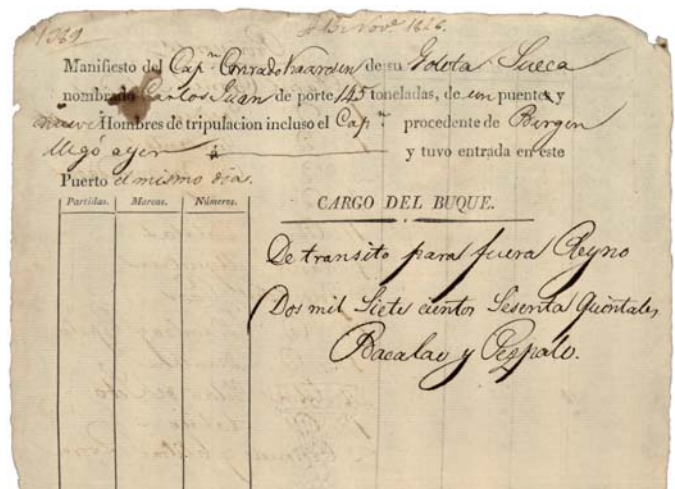 1389 A 15 Nov.e 1826.
Manifiesto del Cap.n Conrado de su Goleta Sueca
nombrado Carlos Juan de porte 145 toneladas, de un puente y
nueve Hombres de tripulacion incluso el Cap.n procedente de Bergen
llegó ayer y tuvo entrada en este
Puerto el mismo dia.
Partidas. Marcas. Números. CARGO DEL BUQUE.
De transito para fuera Reyno
Dos mil Siete cientos Sesenta Quintales
Bacalao y Pezpalo.